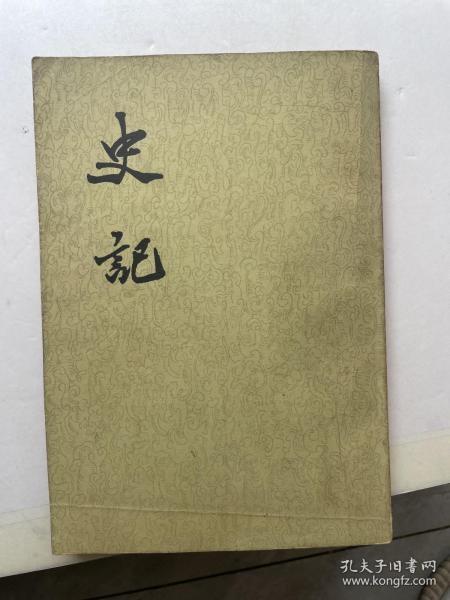 史
記
孔夫子旧书网
www.kongfz.com